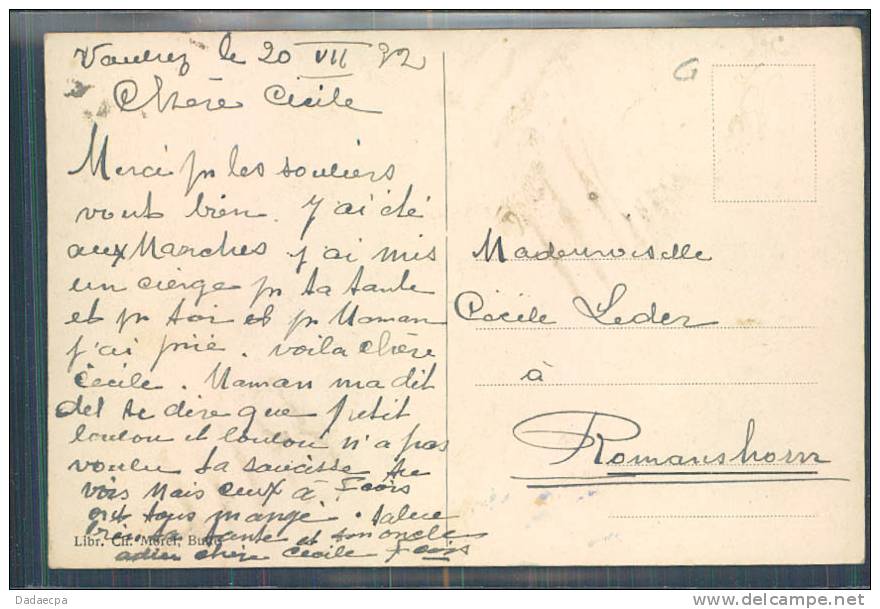 le 20 VII 32
Chère Cécile
Merci pr les souliers
vont bien. J'ai été
aux Marches j'ai mis
un cierge pr ta tante
et pr toi et pr Maman
j'ai prié. voila chère
Cécile. Maman ma dit
de te dire que petit
loulou et loulou n'a pas
voulu ta saucisse tu
vois Mais ceux à
ont tous mangé. salue
ta tante et ton oncle
adieu chère Cécile
Libr. Ch. Morel, Bulle
Mademoiselle
Cécile Leder
à
Romanshorn
Dadaecpa